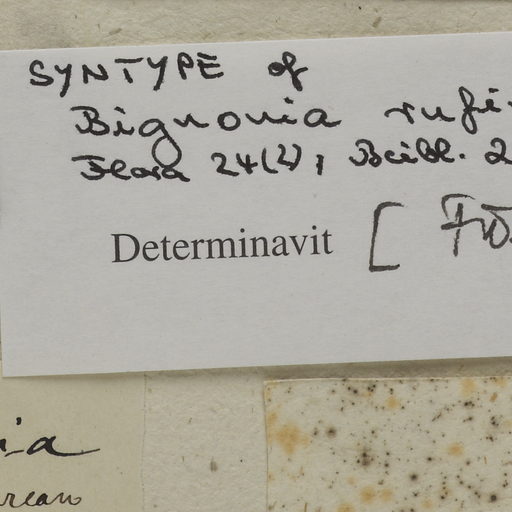 SYNTYPE of
Bignonia rufi
Flora 24(2), Beibl. 2
Determinavit [